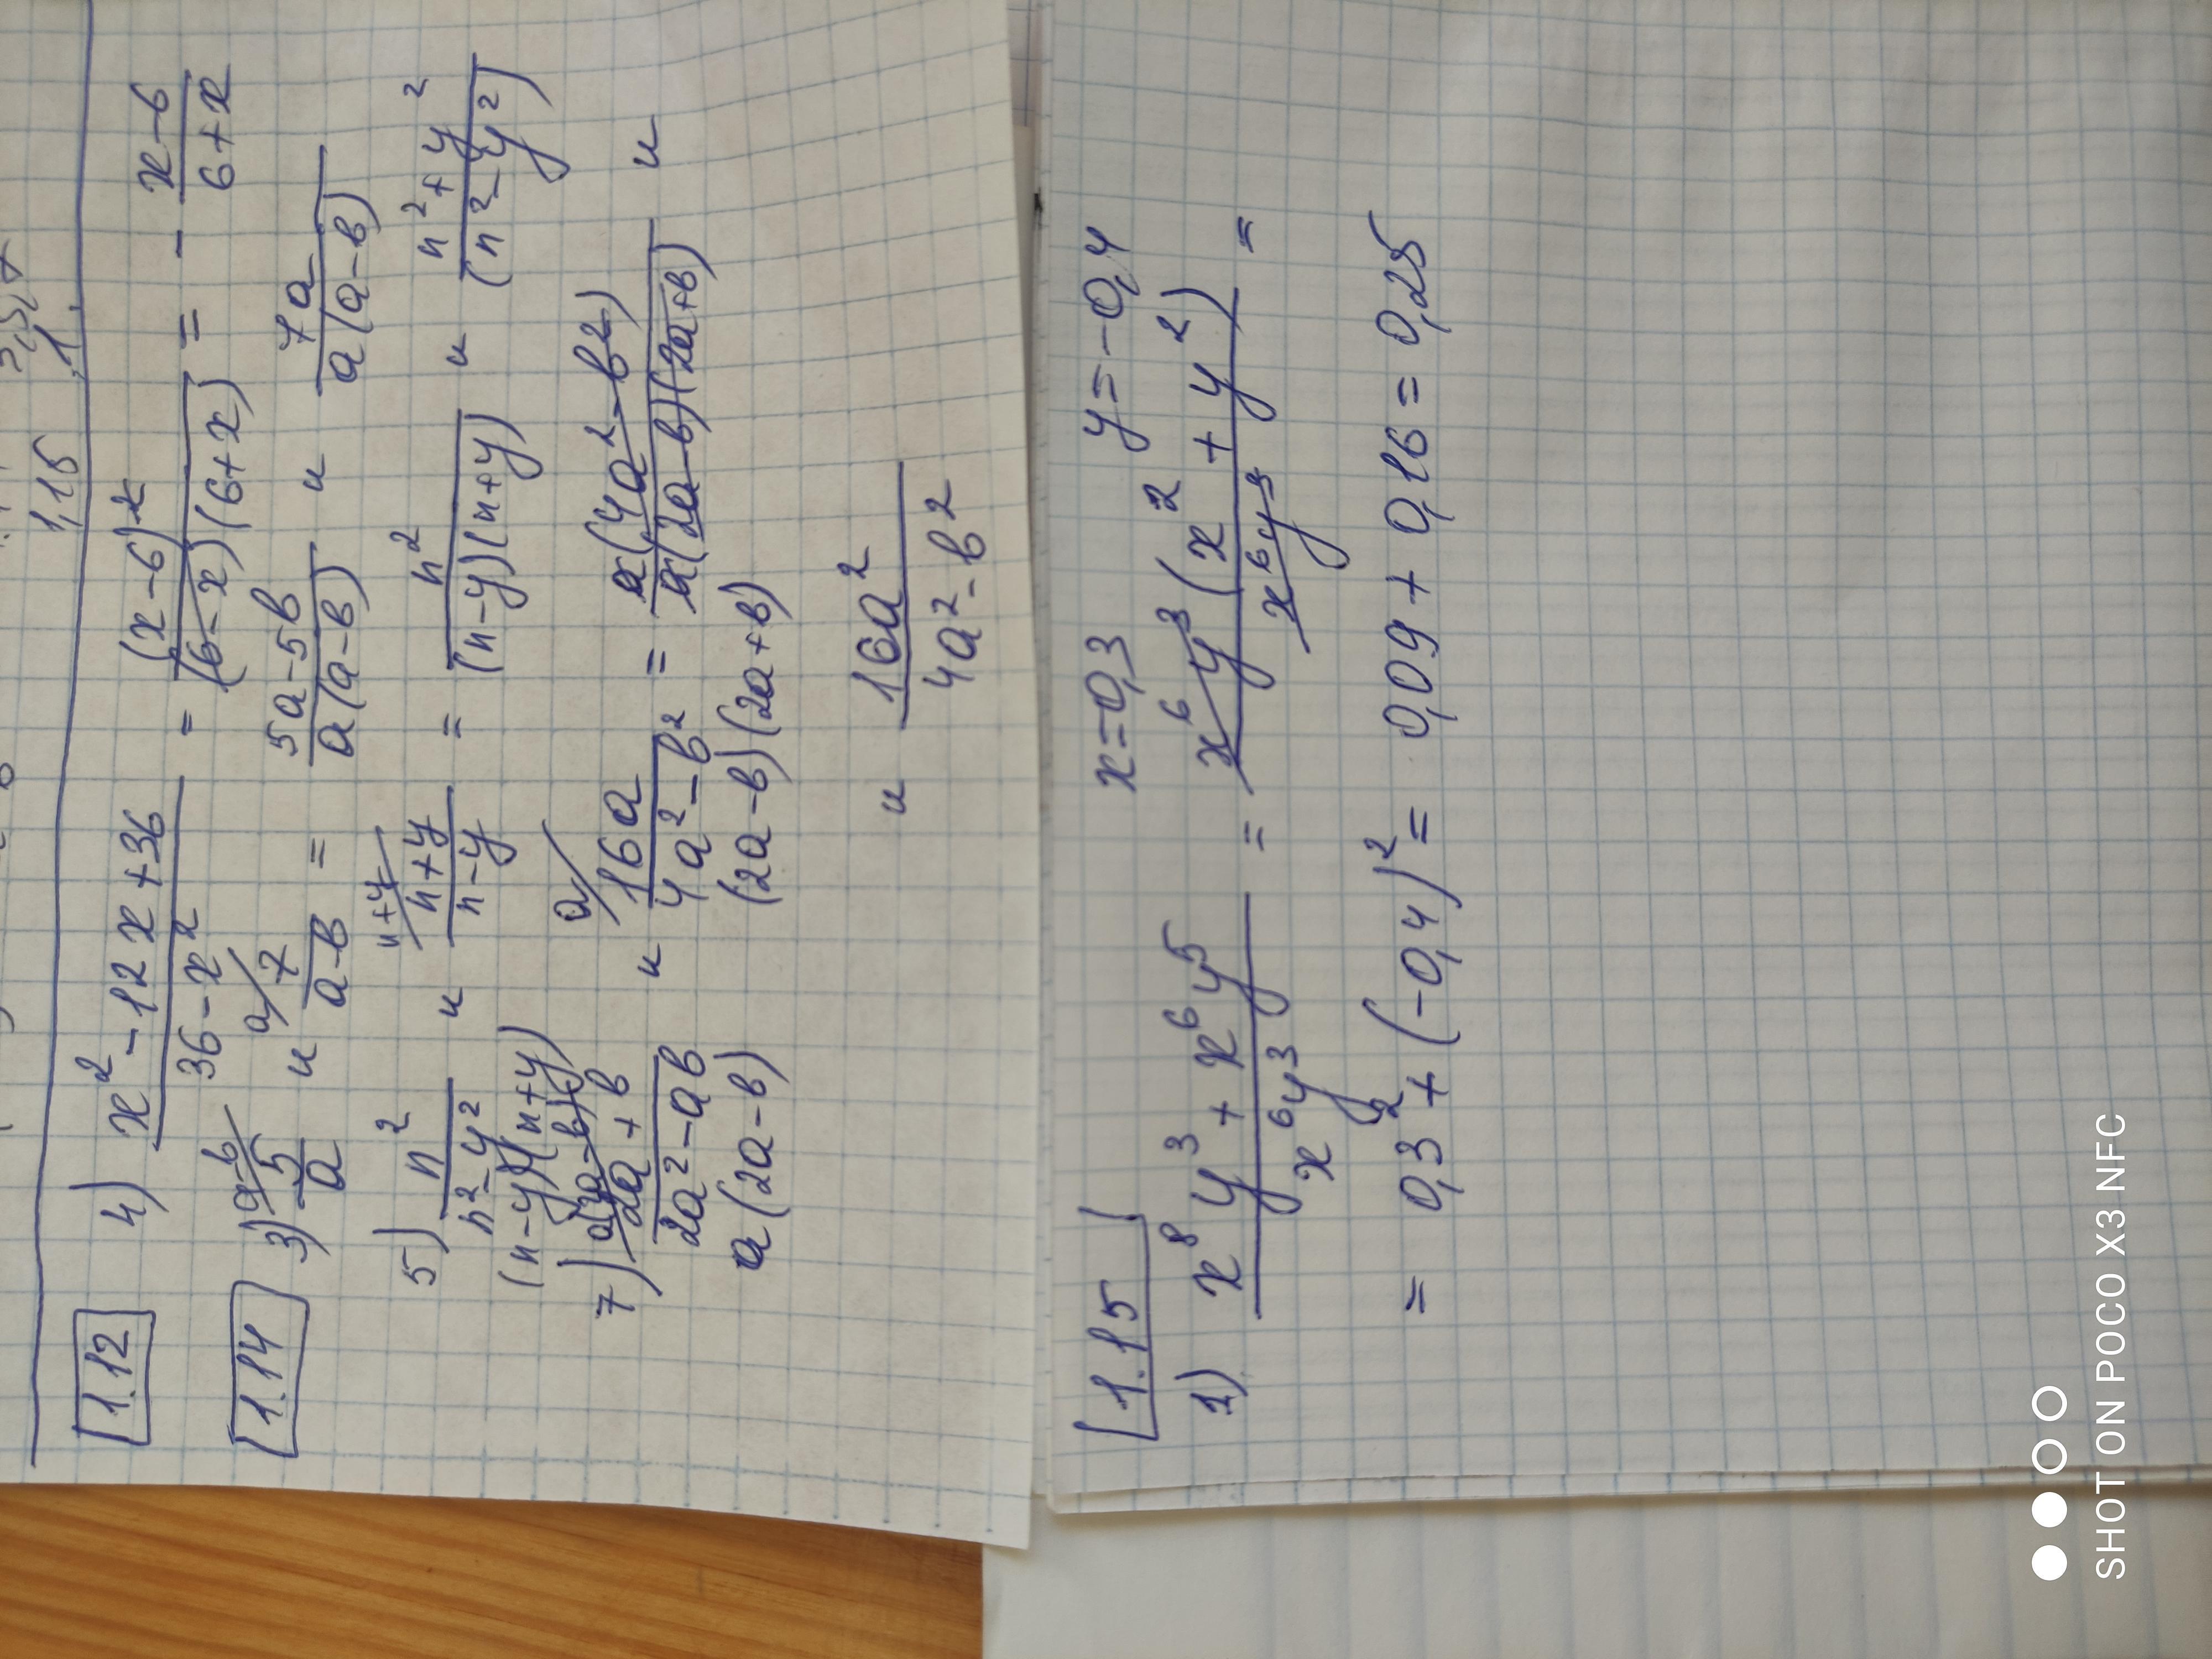 1,15 1
1.12 4) x² - 12x + 36 / 36 - x² = (x - 6)² / (6 - x)(6 + x) = - x - 6 / 6 + x
1.14 3) a-b/ 5 / a и a/ 7 / a - в = 5a - 5в / a(a - в) и 7a / a(a - в)
5) n² / n² - y² и n+y/ n + y / n - y = n² / (n - y)(n + y) и n² + y² / (n² - y²)
(n - y)(n + y)
7) 2a + в / 2a² - aв и a/ 16a / 4a² - в² = a(4a² - в²) / a(2a - в)(2a + в) и
a(2a - в) (2a - в)(2a + в)
и 16a² / 4a² - в²
1.15 x = 0,3 y = -0,4
1) x⁸y³ + x⁶y⁵ / x⁶y³ = x⁶y³(x² + y²) / x⁶y³ =
= 0,3² + (-0,4)² = 0,09 + 0,16 = 0,25
SHOT ON POCO X3 NFC